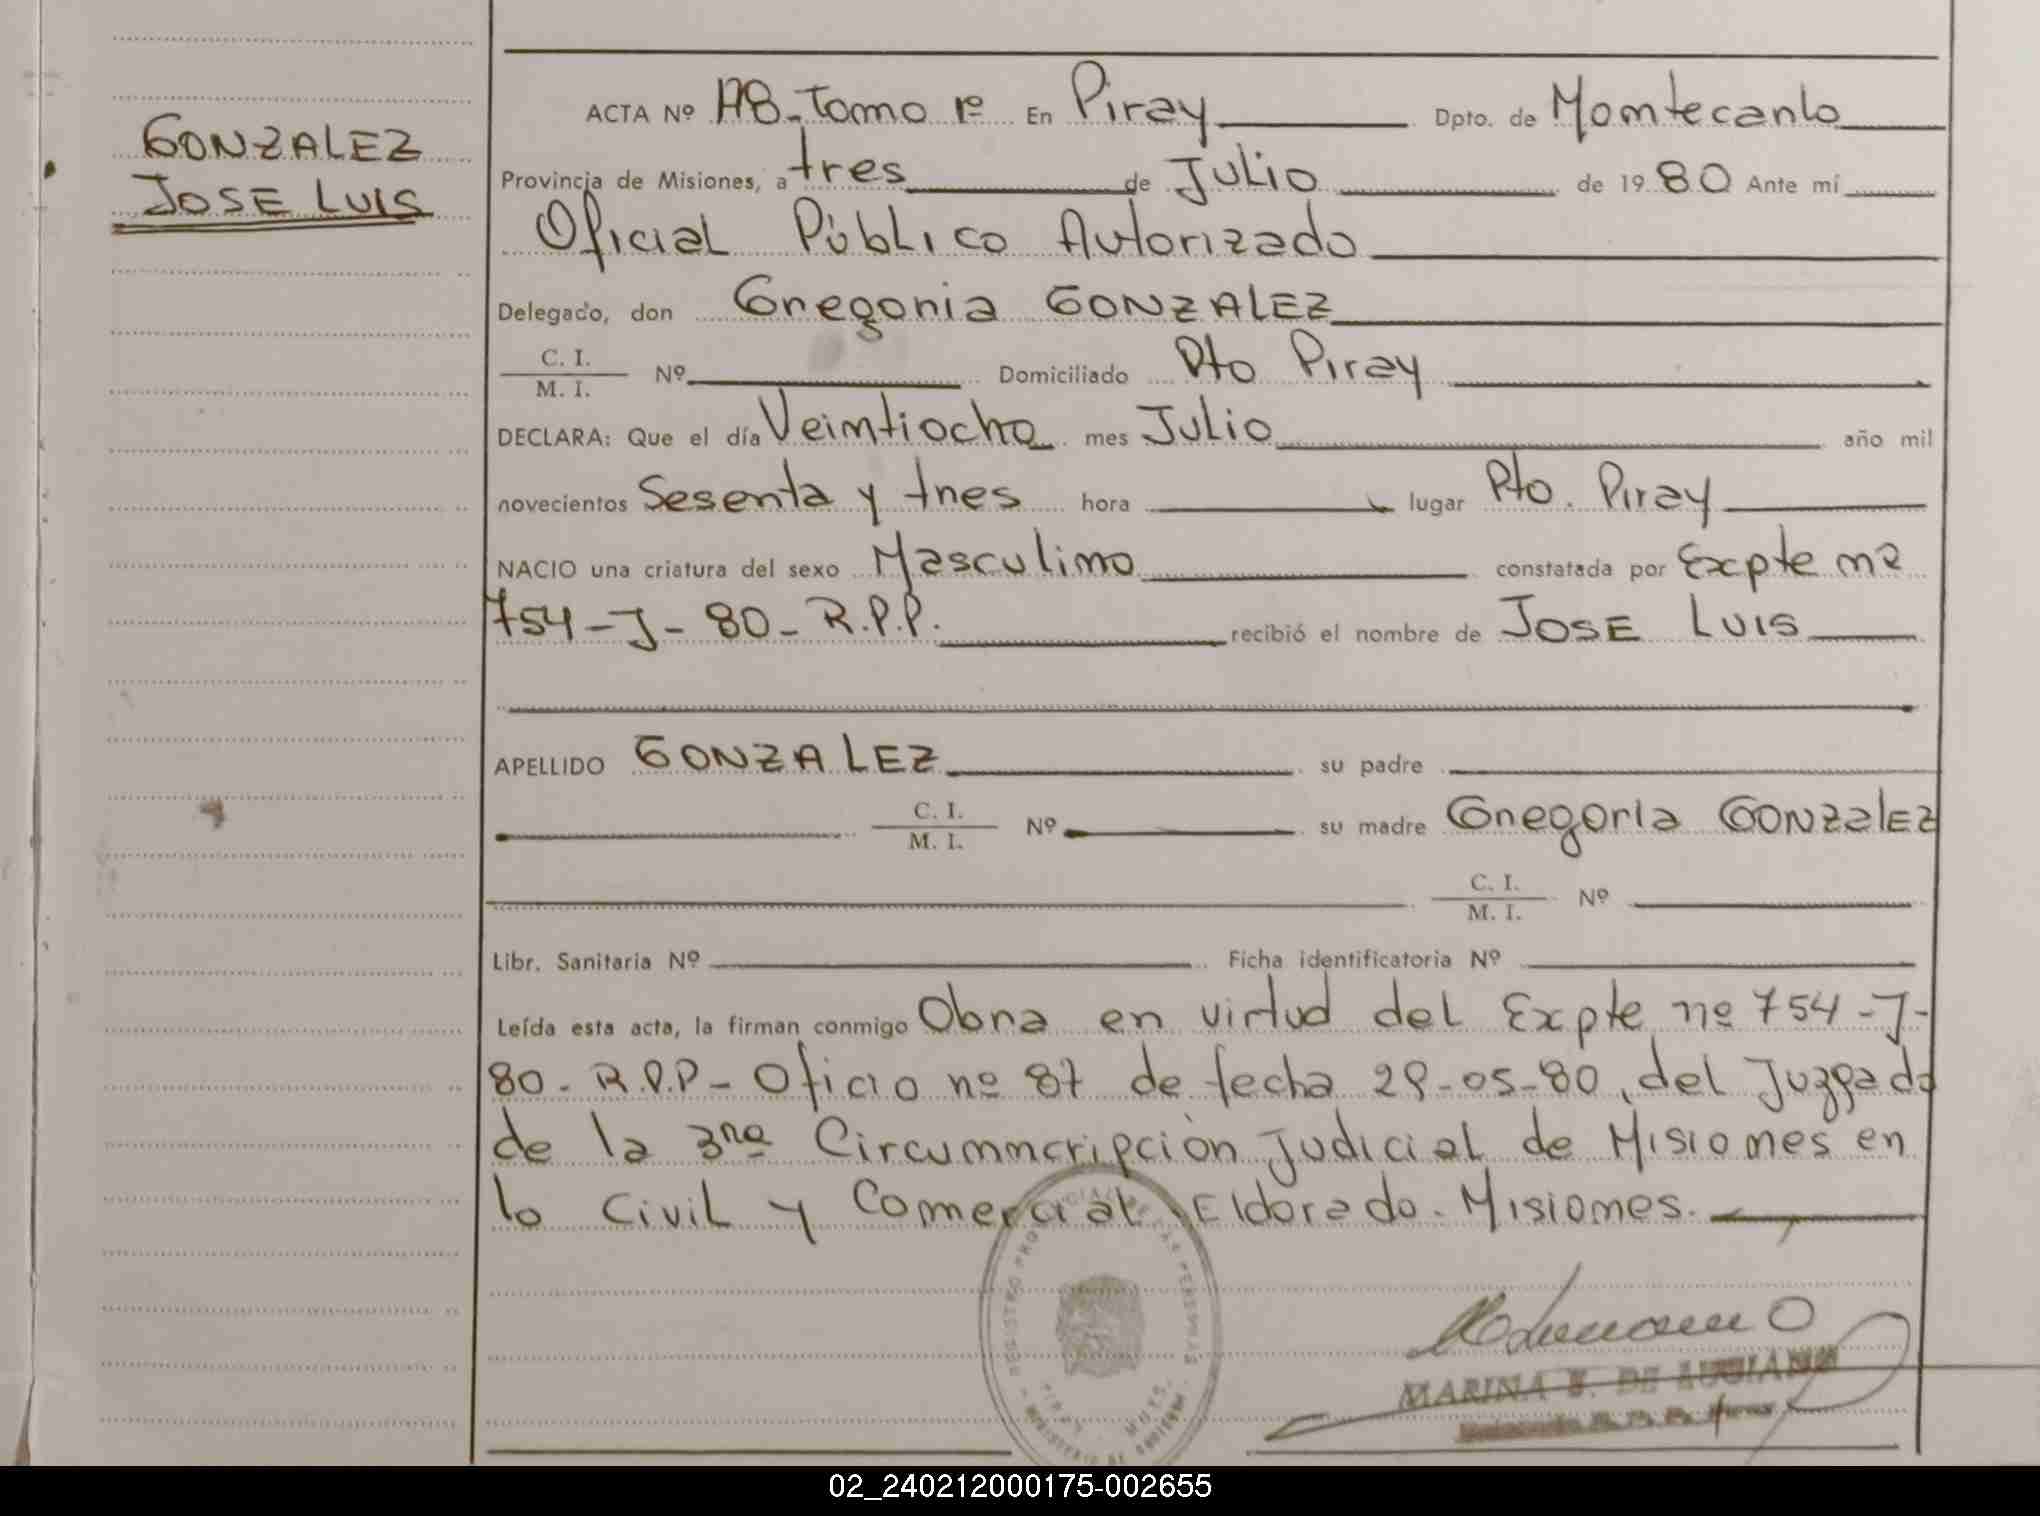 GONZALEZ
JOSE LUIS
ACTA Nº AB-Tomo 1º En Piray Dpto. de Montecarlo
Provincia de Misiones, a tres de Julio de 1980 Ante mí
Oficial Público Autorizado
Delegado, don Gregoria GONZALEZ
C. I.
M. I. Nº Domiciliado Pto Piray
DECLARA: Que el día Veintiocho mes Julio año mil
novecientos Sesenta y tres hora lugar Pto. Piray
NACIO una criatura del sexo Masculino constatada por Expte nº
754-J-80-R.P.P. recibió el nombre de JOSE LUIS
APELLIDO GONZALEZ su padre
C. I.
M. I. Nº su madre Gregoria GONZALEZ
C. I.
M. I. Nº
Libr. Sanitaria Nº Ficha identificatoria Nº
Leída esta acta, la firman conmigo Obra en virtud del Expte nº 754-J-
80-R.P.P- Oficio nº 87 de fecha 29-05-80, del Juzgado
de la 3ra Circunncripción Judicial de Misiones en
lo Civil y Comercial Eldorado-Misiones.
REGISTRO PROVINCIAL DE LAS PERSONAS
MINISTERIO DE GOBIERNO
MARINA DE LUCIANO
02_240212000175-002655